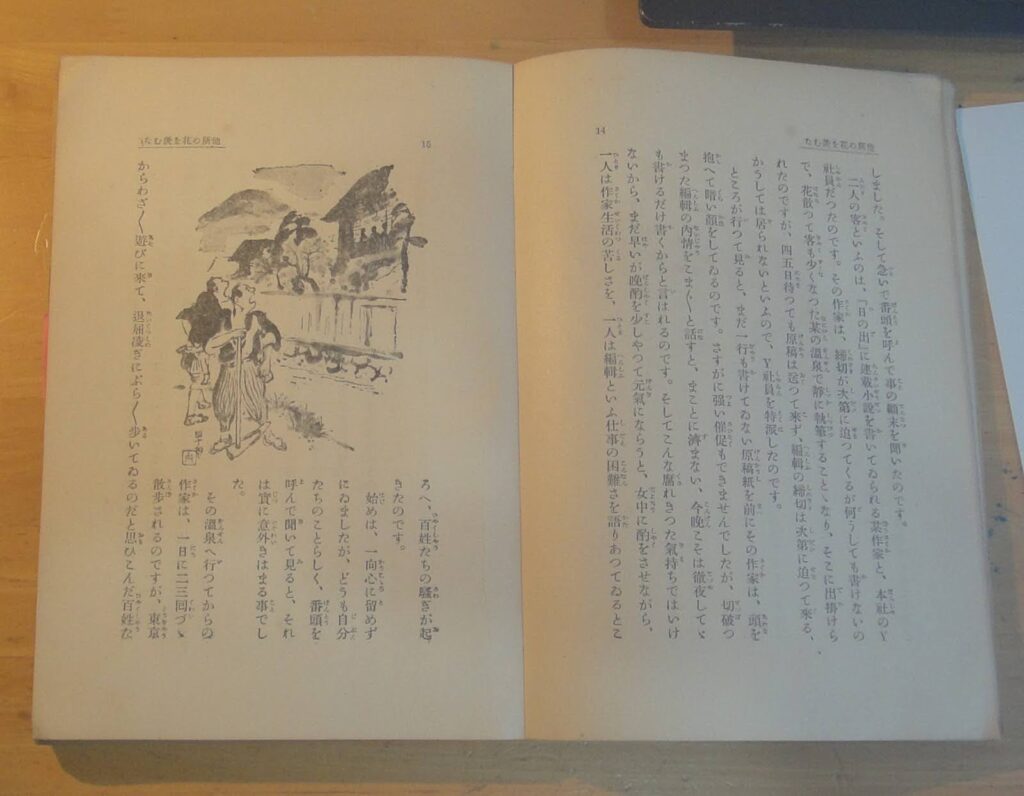 14
しました。そして急いで番頭を呼んで事の顚末を聞いたのです。
二人の客といふのは、『日の出』に連載小說を書いてゐられる某作家と、本社のY
社員だつたのです。その作家は、締切が次第に迫つてくるが何うしても書けないの
で、花散つて客も少くなつた某の溫泉で靜に執筆することゝなり、そこに出掛けら
れたのですが、四五日待つても原稿は送つて來ず、編輯の締切は次第に迫つて來る、
かうしては居られないといふので、Y社員を特派したのです。
ところが行つて見ると、まだ一行も書けてゐない原稿紙を前にその作家は、頭を
抱へて暗い顏をしてゐるのです。さすがに强い催促もできませんでしたが、切破つ
まつた編輯の內情をこま〲と話すと、まことに濟まない、今晚こそは徹夜してゝ
も書けるだけ書くからと言はれるのです。そしてこんな腐れきつた氣持ちではいけ
ないから、まだ早いが晚酌を少しやつて元氣にならうと、女中に酌をさせながら、
一人は作家生活の苦しさを、一人は編輯といふ仕事の困難さを語りあつてゐるとこ
15
ろへ、百姓たちの騷ぎが起
きたのです。
始めは、一向心に留めず
にゐましたが、どうも自分
たちのことらしく、番頭を
呼んで聞いて見ると、それ
は實に意外きはまる事でし
た。
その溫泉へ行つてからの
作家は、一日に二三回づゝ
散步されるのですが、東京
からわざ〱遊びに來て、退屈凌ぎにぶら〱步いてゐるのだと思ひこんだ百姓な